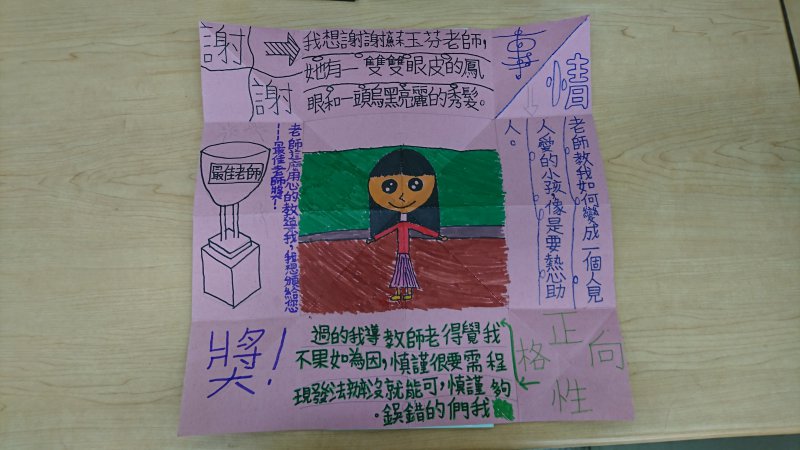 謝
謝
我想謝謝蘇玉芬老師,
她有一雙雙眼皮的鳳
眼和一頭烏黑亮麗的秀髮。
事情
老師教我如何變成一個人見
人愛的小孩,像是要熱心助
人。
正
向
性
格
我覺得老師教導我的過
程需要很謹慎,因為如果不
夠謹慎,可能就沒辦法發現
我們的錯誤。
老師這麼用心的教導我,我想頒給您
——最佳老師獎!
最佳老師
獎!